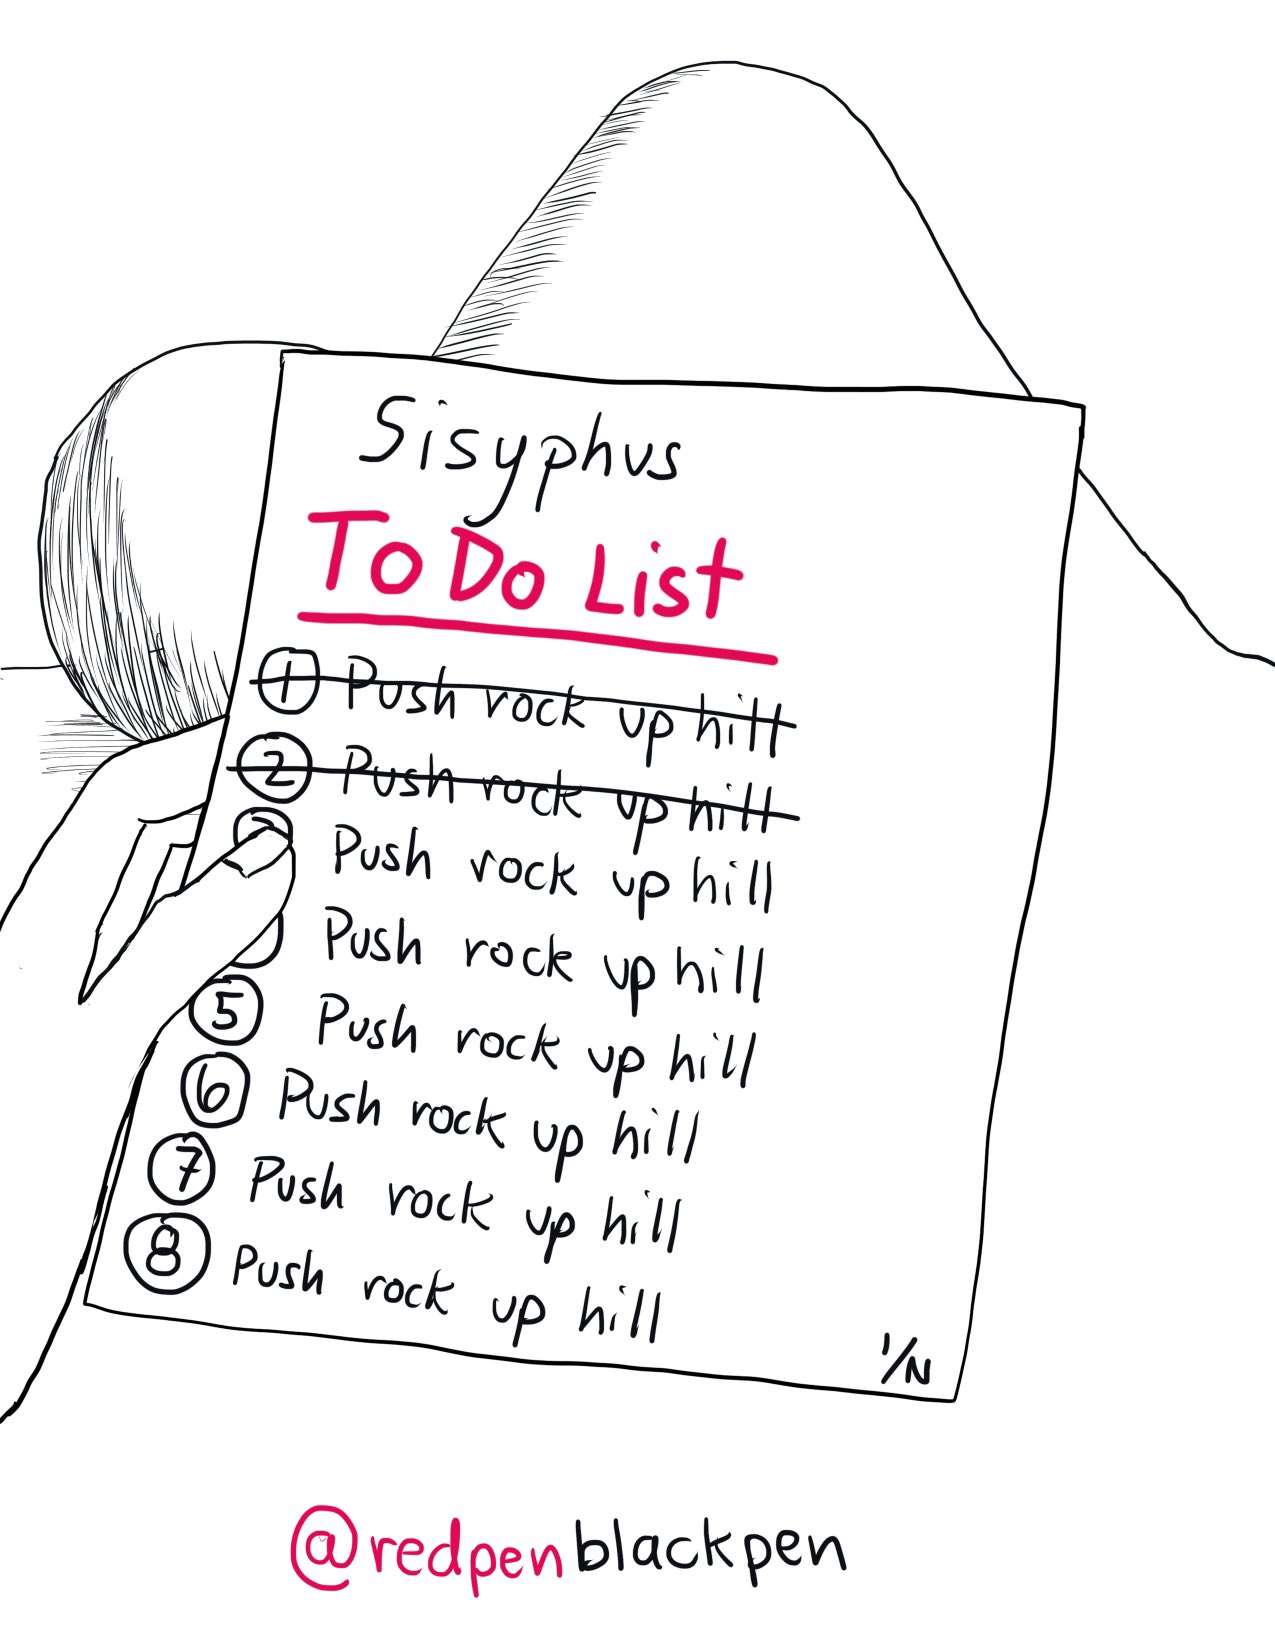 Sisyphus
To Do List
1 Push rock up hill
2 Push rock up hill
Push rock up hill
Push rock up hill
5 Push rock up hill
6 Push rock up hill
7 Push rock up hill
8 Push rock up hill
1/N
@redpenblackpen